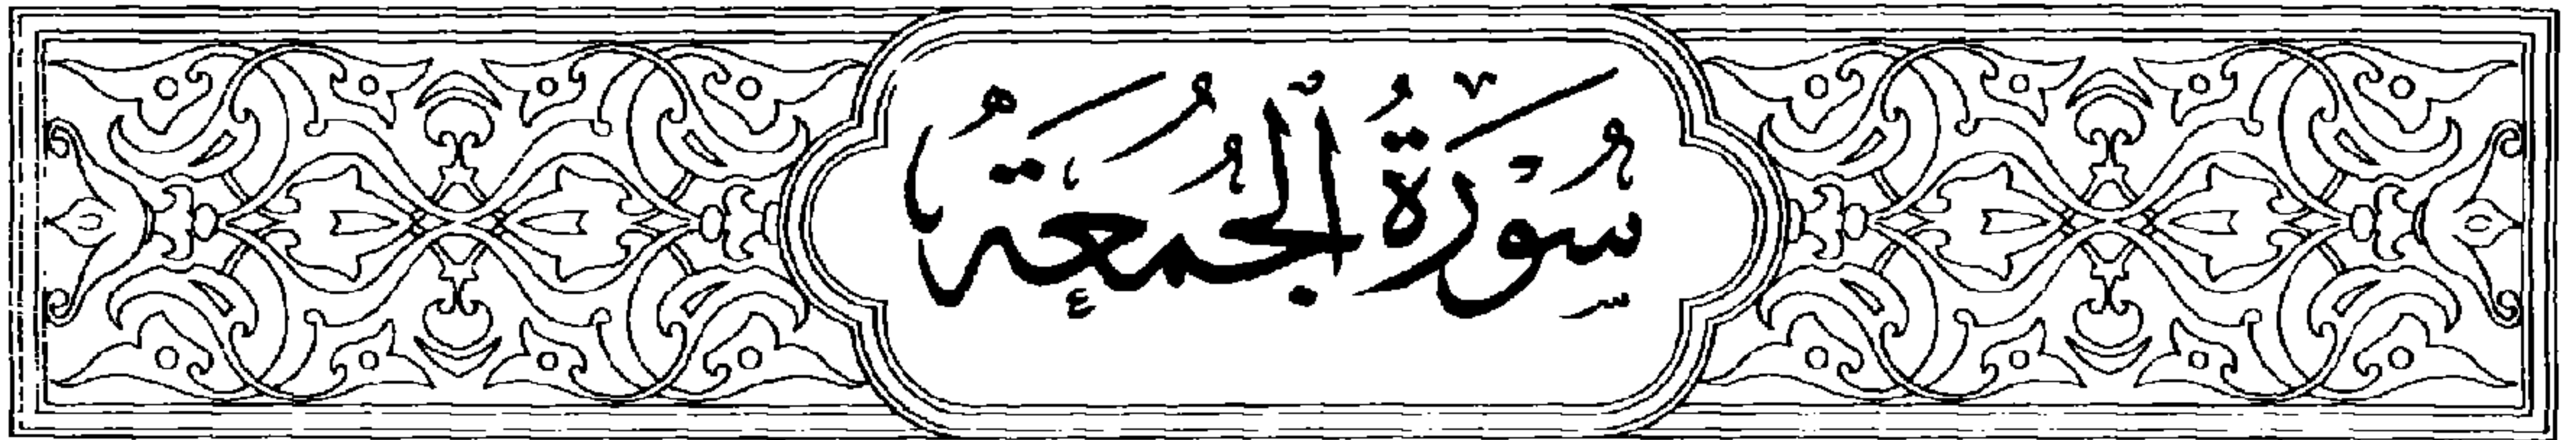 سُوْرَةُ الْجُمُعَةُ